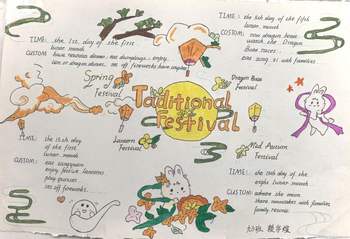 TIME: the 1st day of the first
lunar month
CUSTOM: have reunion dinner. eat dumplings. enjoy
lion or dragon dances. set off fireworks have
TIME: the 5th day of the fifth
lunar month
CUSTOM: row dragon boat
watch the Dragon
Boat races
eat zongzi with families
Spring
Festival
Dragon Boat
Festival
Traditional
Festival
TIME: the 15th day
of the first
lunar month
CUSTOM: eat
enjoy festive lanterns
guess
set off fireworks.
Lantern
Festival
Mid Autumn
Festival
TIME: the 15th day of the
lunar month
CUSTOM: the moon
share mooncakes with families
family reunion